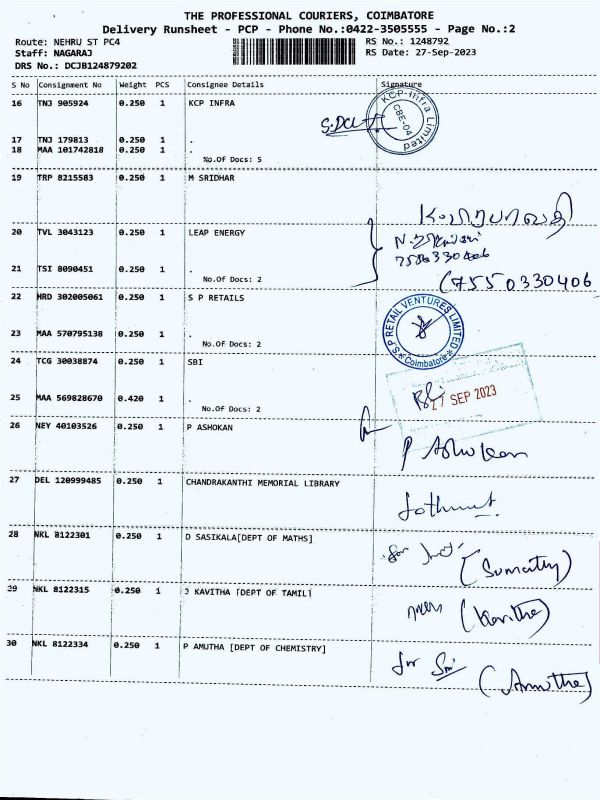 THE PROFESSIONAL COURIERS, COIMBATORE
Delivery Runsheet - PCP - Phone No.:0422-3505555 - Page No.:2
Route: NEHRU ST PC4 RS No.: 1248792
Staff: NAGARAJ RS Date: 27-Sep-2023
DRS No.: DCJB124879202
S No Consignment No Weight PCS Consignee Details Signature
16 TNJ 905924 0.250 1 KCP INFRA
KCP Infra Limited
CBE-04
17 TNJ 179813 0.250 1 .
18 MAA 101742818 0.250 1 .
No.Of Docs: 5
19 TRP 8215583 0.250 1 M SRIDHAR
20 TVL 3043123 0.250 1 LEAP ENERGY
7550330406
21 TSI 8090451 0.250 1 .
No.Of Docs: 2
(7550330406
22 HRD 302005061 0.250 1 S P RETAILS
S P RETAIL VENTURES LIMITED
* Coimbatore *
23 MAA 570795138 0.250 1 .
No.Of Docs: 2
24 TCG 30038874 0.250 1 SBI
25 MAA 569828670 0.420 1 .
27 SEP 2023
No.Of Docs: 2
26 NEY 40103526 0.250 1 P ASHOKAN
P Ashokan
27 DEL 120999485 0.250 1 CHANDRAKANTHI MEMORIAL LIBRARY
28 NKL 8122301 0.250 1 D SASIKALA[DEPT OF MATHS]
for
(Sumathy)
29 NKL 8122315 0.250 1 J KAVITHA [DEPT OF TAMIL]
(Kavitha)
30 NKL 8122334 0.250 1 P AMUTHA [DEPT OF CHEMISTRY]
for
(Amutha)